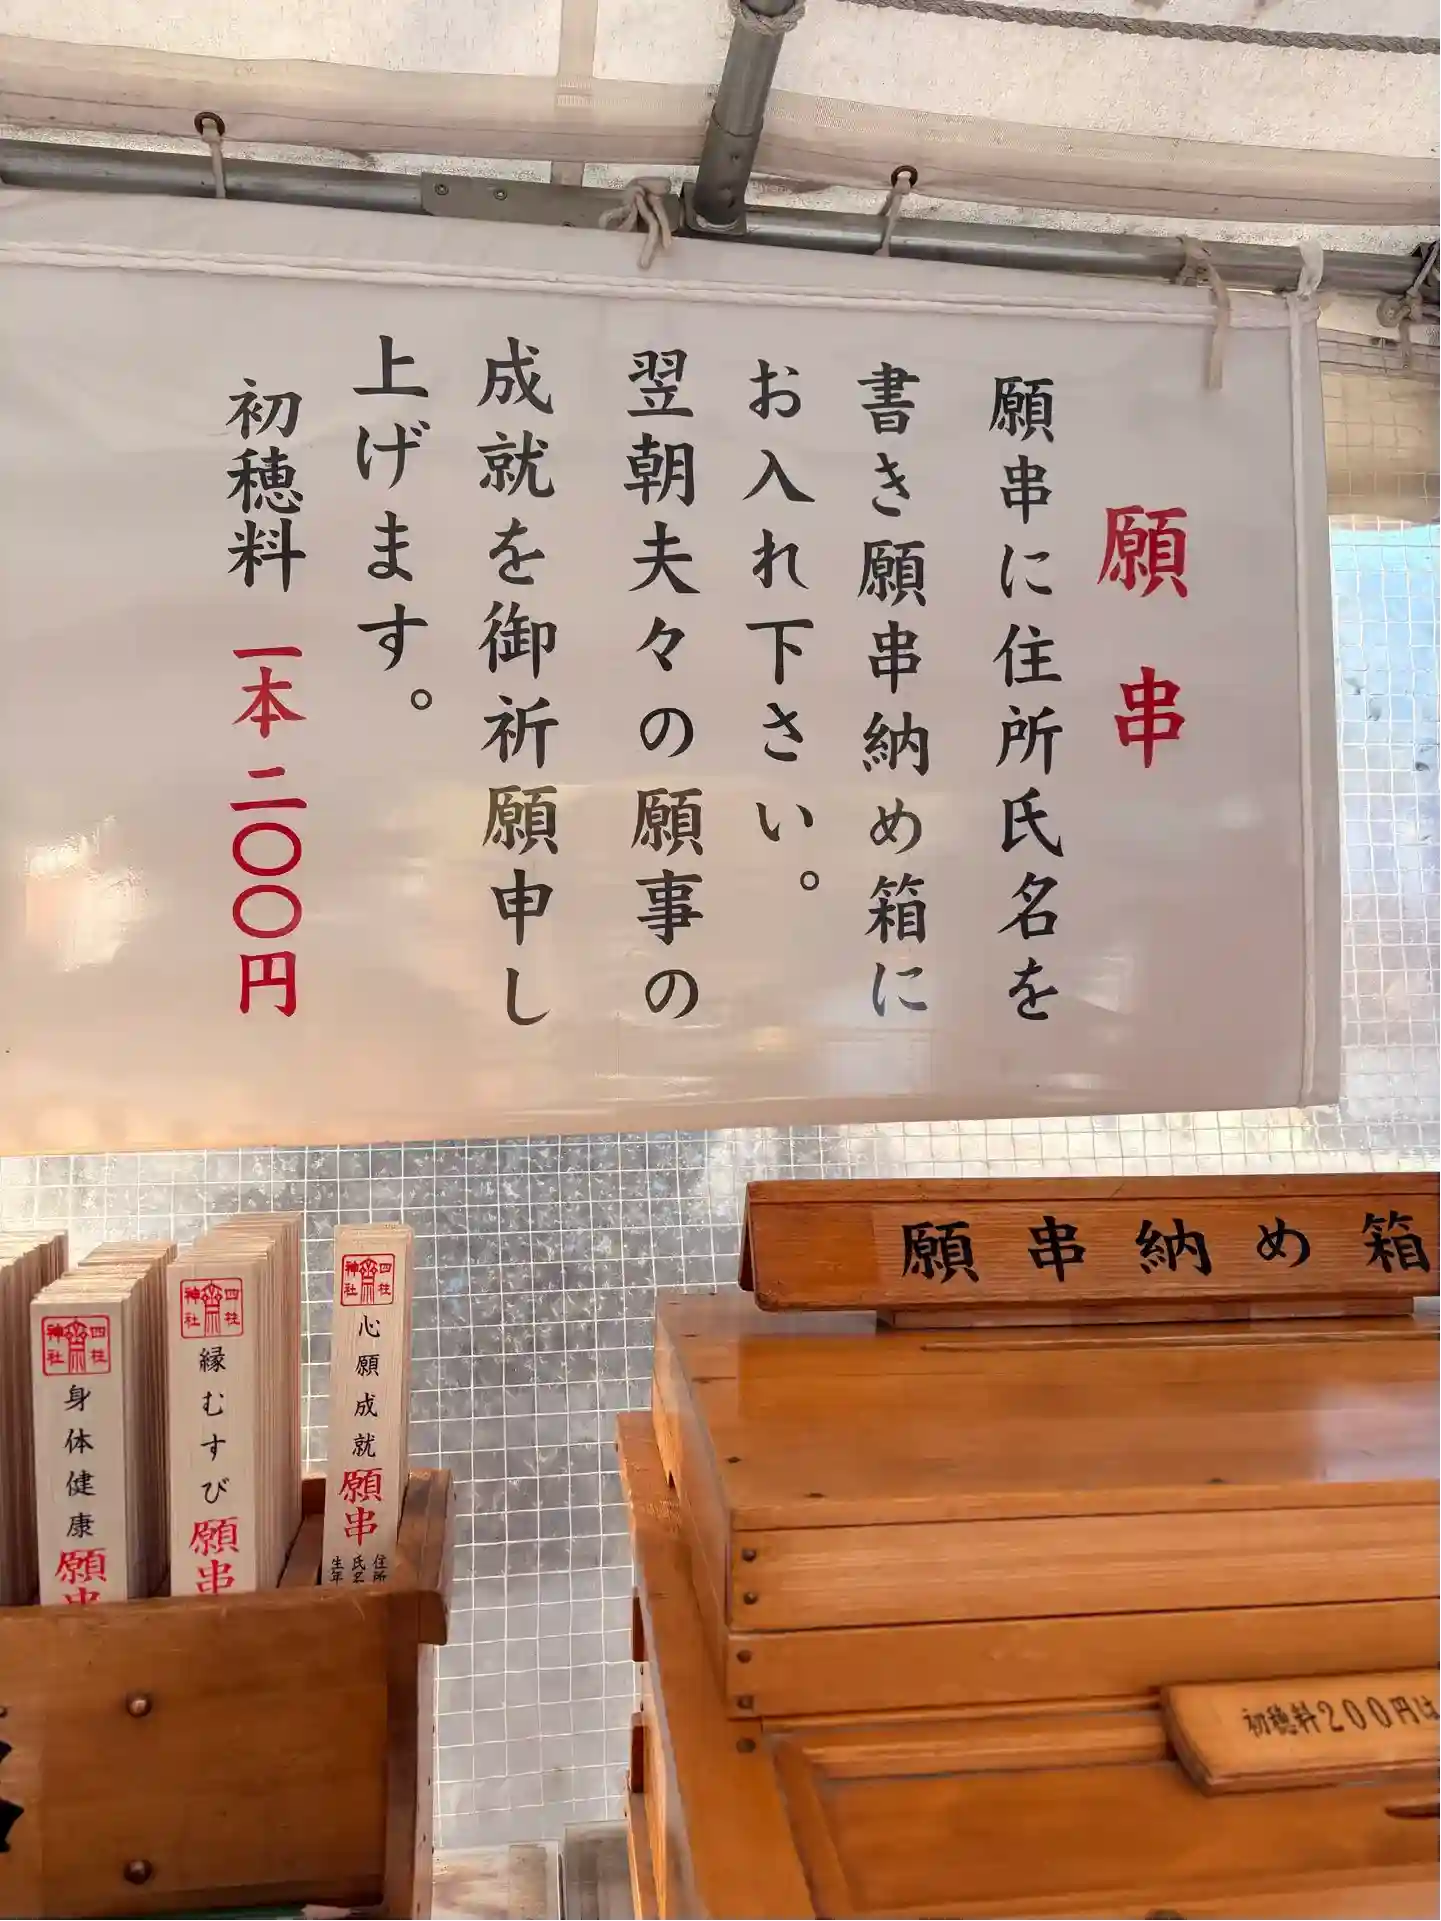 願串
願串に住所氏名を
書き願串納め箱に
お入れ下さい。
翌朝夫々の願事の
成就を御祈願申し
上げます。
初穂料 一本 二〇〇円
願串納め箱
四柱
神社
心願成就
願串
住所
氏名
生年
四柱
神社
縁むすび
願串
四柱
神社
身体健康
願串
初穂料200円は